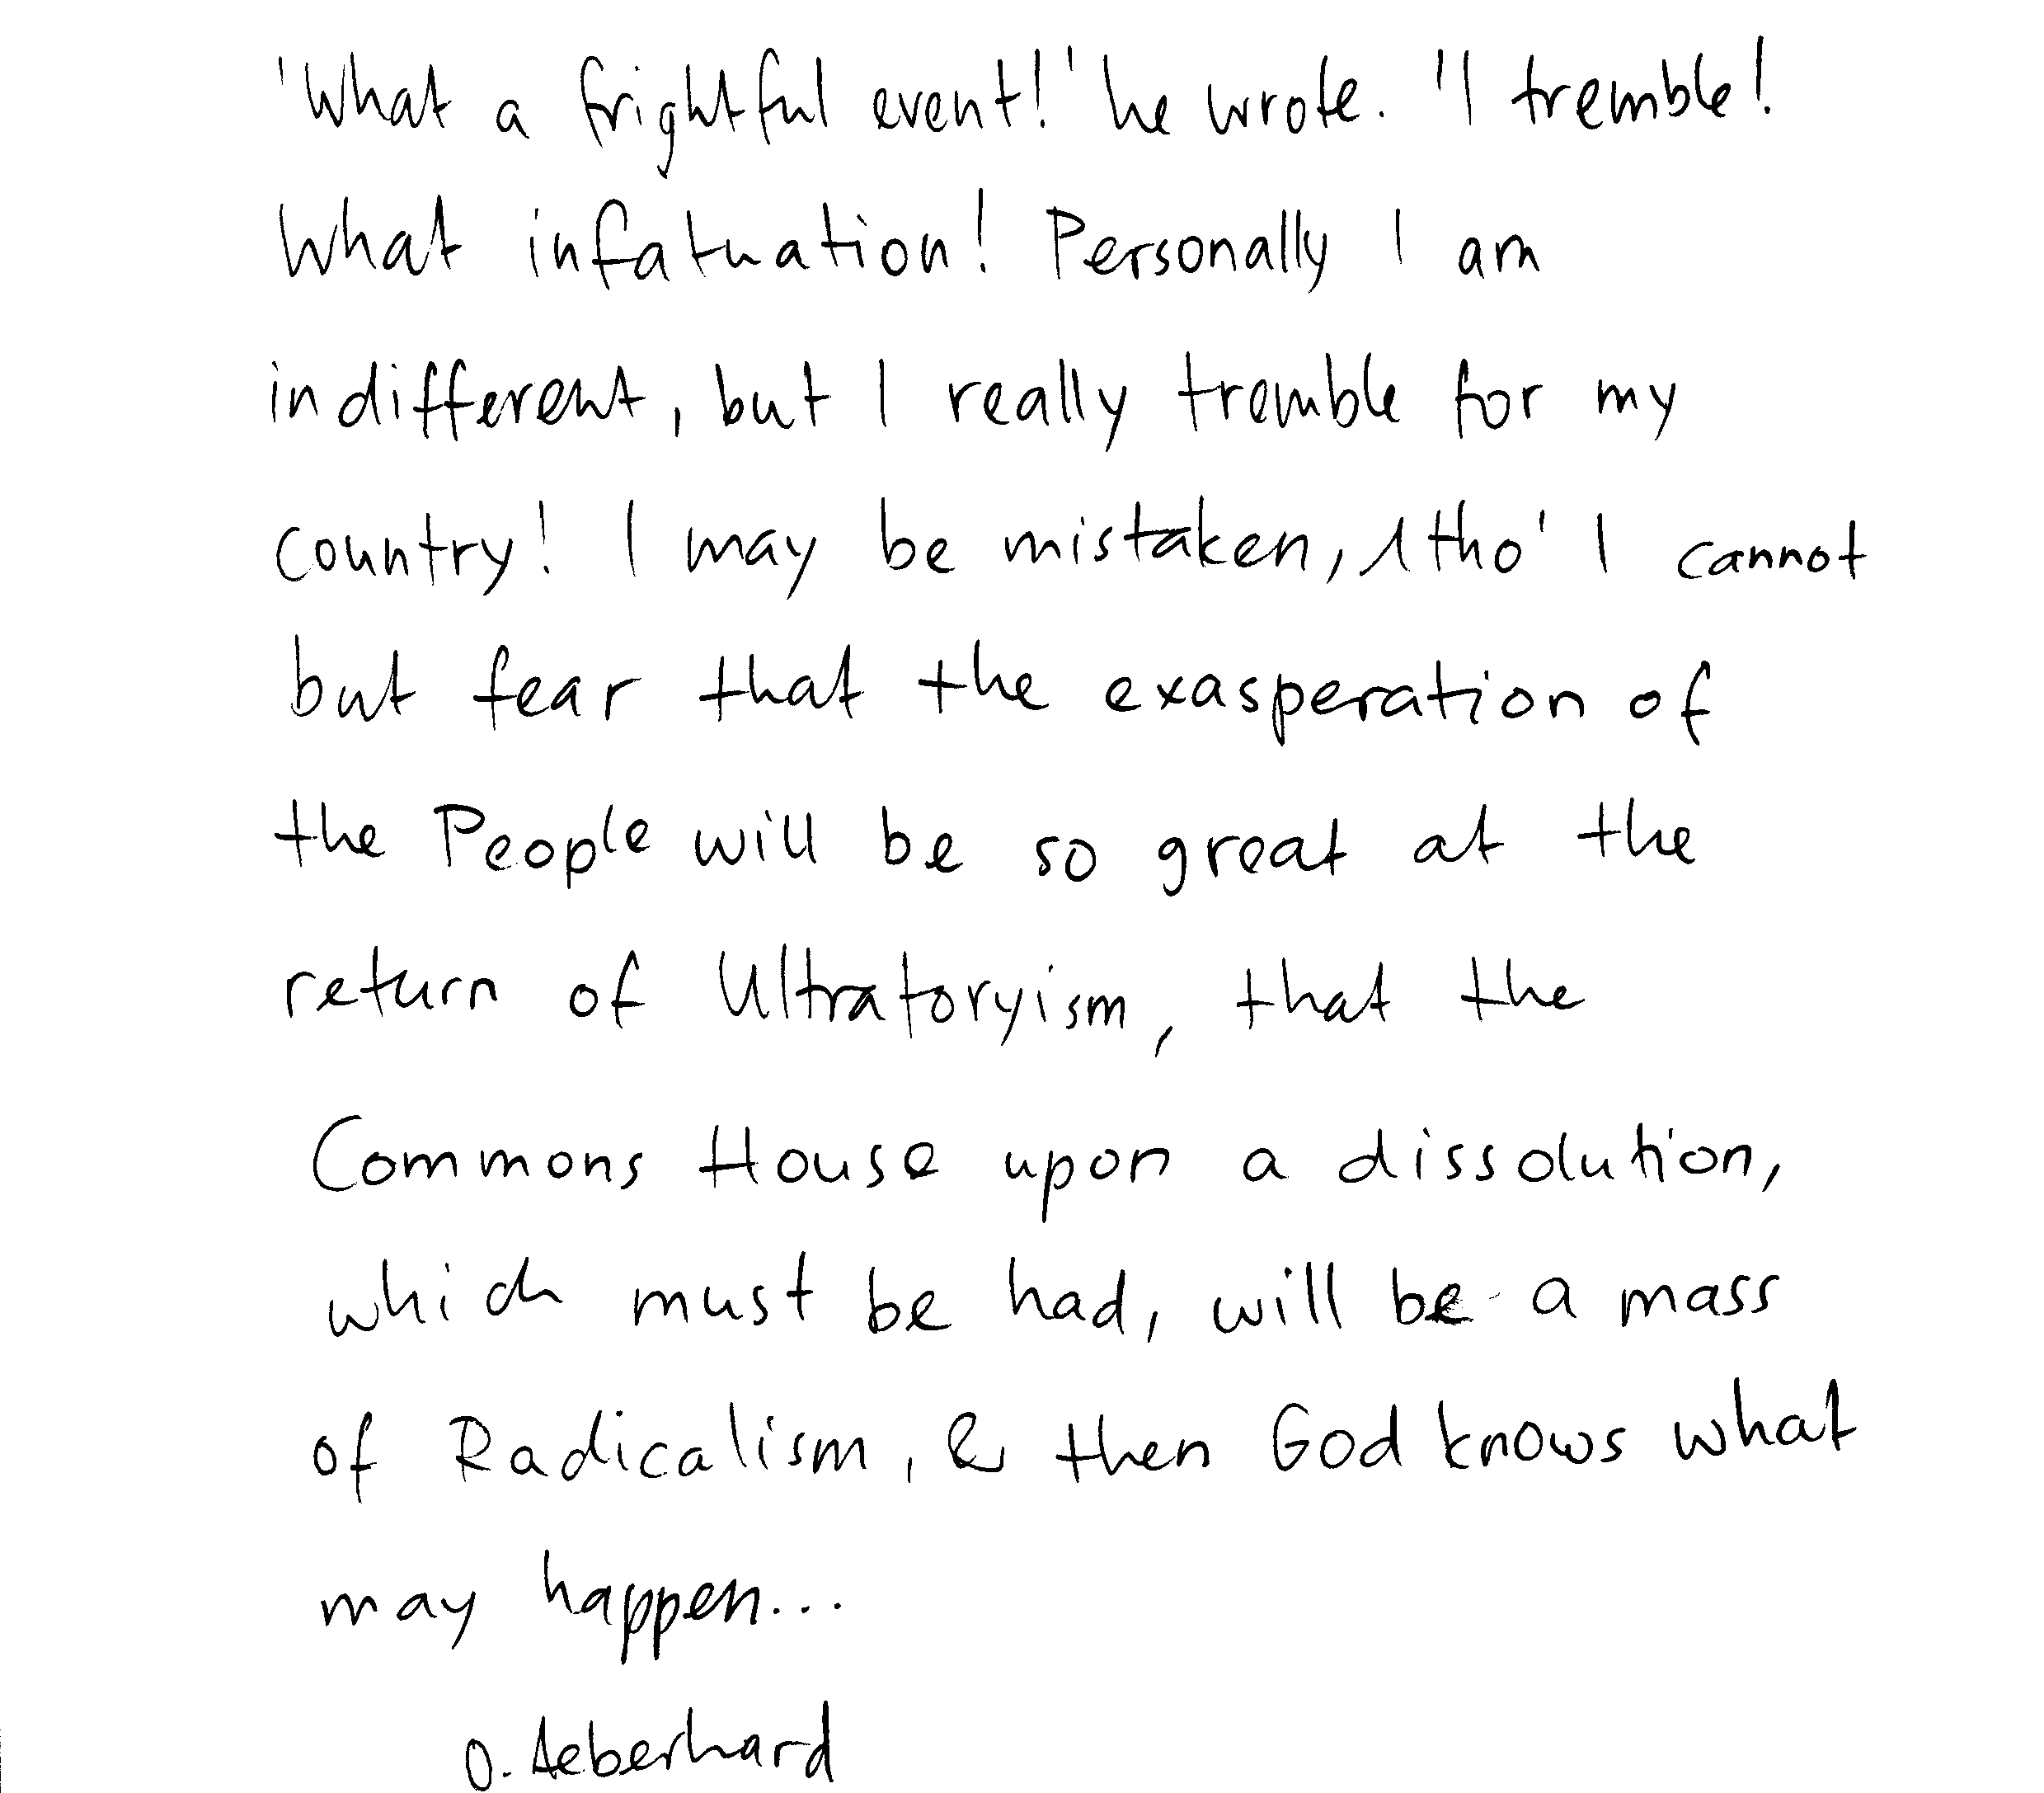 'What a frightful event!' he wrote. 'I tremble!
What infatuation! Personally I am
indifferent, but I really tremble for my
country! I may be mistaken, tho' I cannot
but fear that the exasperation of
the People will be so great at the
return of Ultratoryism, that the
Commons House upon a dissolution,
which must be had, will be a mass
of Radicalism, & then God knows what
may happen...
O. Aeberhard